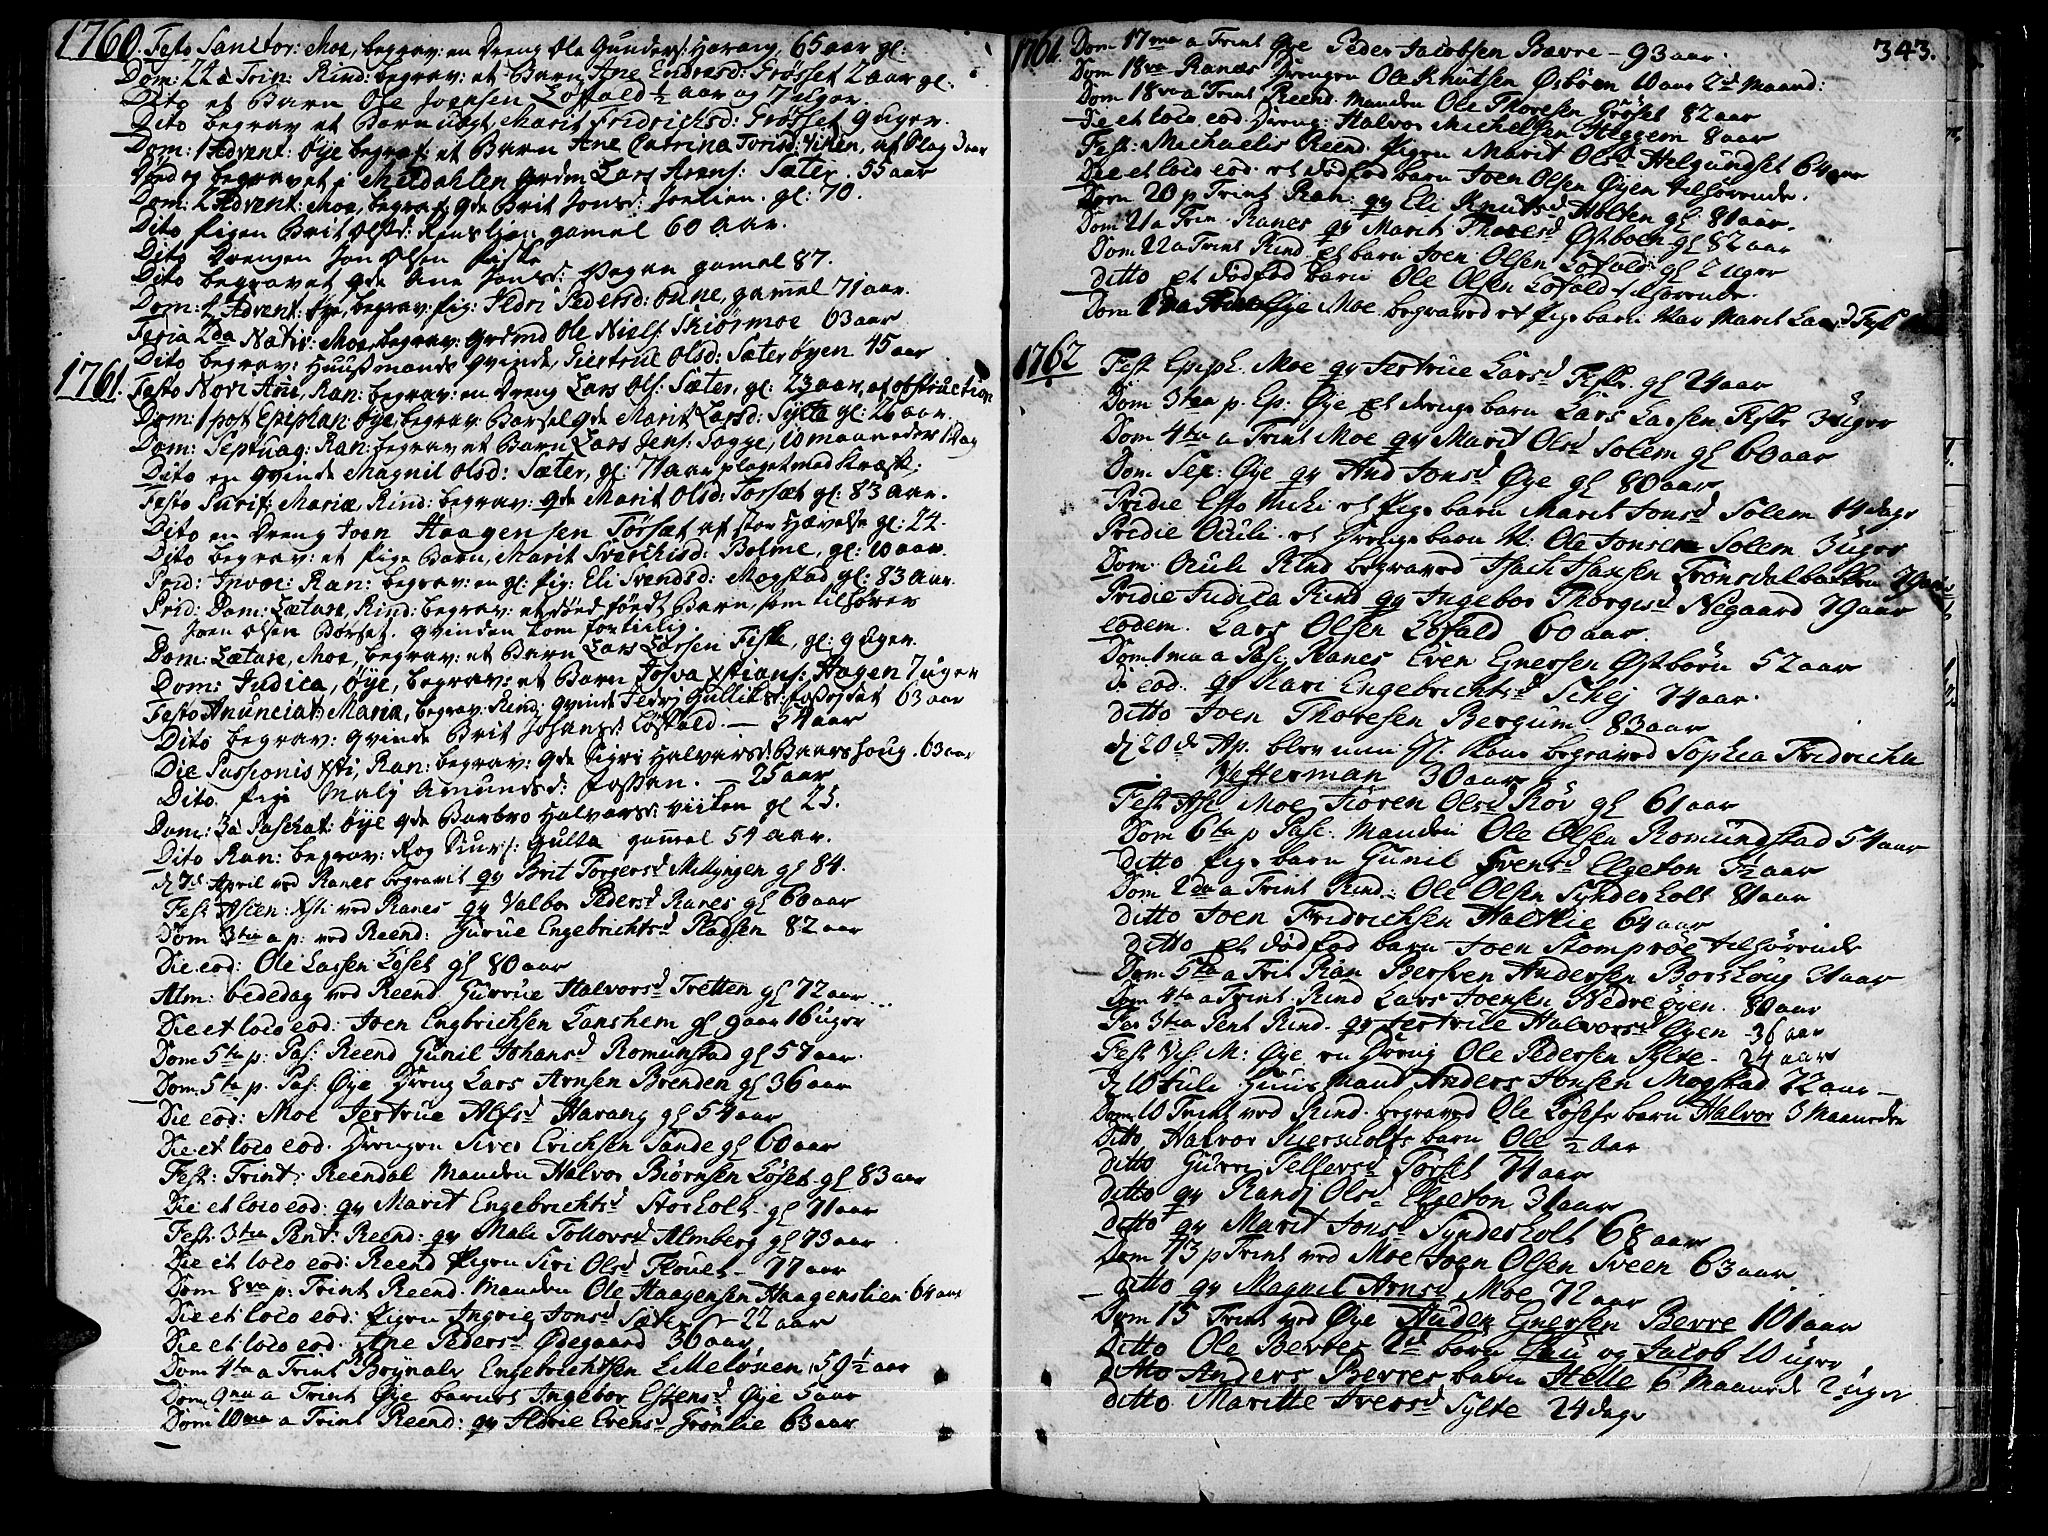 1760. Festo Sanctor: Moe, begrav: en Dreng Ole Gunders: Harang, 65 aar gl:
Dom: 24 à Trin: Rind: begrav: et Barn Ane Endresd: Frøsset 2 aar gl:
Dito et Barn Ole Joensen Løfald ½ aar og 7 uger.
Dito begrav et Barn Marit Fridrichsd: Frøsset 9 uger.
Dom: 1 Advent: Øye begrav: et Barn Ane Catrina Torisd: Viken, af Slag 3 aar
begravet i Meldahlen Lars Arens: Sæter. 55 aar
Dom: 2 Advent: Moe, begrav: qde Brit Jonsd: Joelien. gl: 70.
Dito Pigen Brit Olsd: gamel 60 aar.
Dito Drengen Jon Olsen Fiske
Dito begravet qde Ane Jonsd: gamel 87.
Dom: 4 Advent: Øye, begrav: pig: Sidri Pedersd: gamel 71 aar.
Feria 2da Nativ: Moe, begrav: Ole Niels: Skiørmoe 63 aar
Dito begrav: Huusmands qvinde, Giertrul Olsd: Sæterøyen 45 aar
1761. Festo Novi Ani, Ran: begrav: en Dreng Lars Ols: Sæter, gl: 23 aar, af obstruction
Dom: 1 post Epiphan: Øye, begrav Barsel qde Marit Larsd: Sylta gl: 26 aar.
Dom: Septuag: Ran: begrav et Barn Lars Jens: Sogge, 10 maaneder 1 Dag
Dito en qvinde Magnil Olsd: Sæter, gl: 71 aar plaget med Kræft:
Festo Purif: Mariæ, Rind: begrav: qde Marit Olsd: Torsæt gl: 83 aar.
Dito en Dreng Joen Haagensen Torsæt af stor Hævelse gl: 24.
Dito begrav: et Pige Barn, Marit Sverchisd: Bolme, gl: 10 aar.
Prid: Invoc: Ran: begrav: en gl: pig: Eli Svendsd: Mogstad gl: 83 aar.
Prid: Dom: Lætare, Rind: begrav: et død født Barn, som tilhører
Joen Olsen Børset. qvinden kom fortiilig.
Dom: Lætare, Moe, begrav: et Barn Lars Larssen Fiske, gl: 9 uger.
Dom: Judica, Øye, begrav: et Barn Josva Xstians: Hagen 7 uger
Festo Anunciat: Mariæ, begrav: Rind: qvinde Sidrj Gulliksd: 63 aar
Dito begrav: qvinde Brit Johansd: Løfald. — 54 aar
Die Passionis Xsti, Ran: begrav: qde Sigri Halvorsd: Baarshoug. 63 aar
Dito. pige Malj Amundsd: Fossan. — 25 aar
Dom: 3 à Paschat: Øye qde Barbro Halvorsd: Viiken gl 25.
Dito Ran: begrav: Rog Siurs: Gulla gamel 54 aar.
d 7d. April ved Ranes begravet qv Brit Torgersd gl 84.
Fest Ascen: Xsti ved Ranes qv Valbor Pedersd Ranes gl 60 aar
Dom 3tia a p: ved Reend: Gurue Engebrichtsd Pladsen 82 aar
Die eod: Ole Lassen Løset gl 80 aar
Alm: bededag ved Reend Gurrue Halvorsd Tretten gl 72 aar
Die et loco eod: Joen Engbrichsen Lanshem gl 9 aar 16 uger
Dom 5ta p: Pas: Reend Gunil Johansd Romunstad gl 57 aar.
Dom: 5ta p. Pas: Øye Dreng Lars Arnsen Brenden gl 36 aar
Die eod: Moe Jertrue Alfsd Harang gl 54 aar
Die et loco eod. Drengen Siver Erichsen Sande gl 60 aar
Fest: Trint: Reendal Manden Halvor Biørnsen Løset gl 83 aar
Die et loco eod: qv Marit Engebrichtsd Storholt gl 71 aar
Fest: 3tia Pent: Reend: qv Mali Tollovsd Almberg gl 73 aar
Die et loco eod: Reend Pigen Siri Olsd Flouet — 77 aar
Dom 8va p: Trint Reend. Manden Ole Haagensen Haagenslien 64 aar
Die et loco eod: Pigen Ingrie Jonsd Sæter — 22 aar
Die et loco eod. Ane Pedersd Ødegaard 30 aar
Dom 4ta a Trint Brynale Engebrichtsen Lilleløken 59½ aar
Dom 9na a Trint Øye barnet Ingebor Estensd Øye 5 aar
Dom 10ma a Trint Reend: qv Sidrie Evensd Grønlie 63 aar
343.
1761 Dom 17ma a Trint Øye Peder Jacobsen Bævre — 93 aar
Dom 18va Ranæs Drengen Ole Knutsen Østbøen 10 aar 2d Maand:
Dom 18va a Trint Reend. Manden Ole Thoresen Grøset 82 aar
Die et loco eod. Dreng: Halvor Michelsen Heggem 8 aar
Fest: Michaelis Reend. Pigen Marit Olsd Helgundset 64 aar
Die et loco eod. et dødfød barn Joen Olsen Øyen tilhørende.
Dom 20 p Trint Ran: qv Eli Knutsd Holten gl 81 aar.
Dom 21 a Trin. Ranes qv Marit Thoresd Østboen gl 82 aar
Dom 22 a Trint Rind et barn Joen Olsen Løfald gl 2 uger
ditto et dødfød barn Ole Olsen Løfald tilhørende.
Dom Moe begraved et pige barn Marit Larsd Fisk
1762 Fest Epiph. Moe qv Jertrue Larsd Fiske. gl 24 aar
Dom 3tia p. Ep: Øye et drenge barn Lars Larsen Fiske 3 uger
Dom 4ta a Trint Moe qv Marit Olsd Solem gl 60 aar
Dom Sex: Øye qv And Jonsd Øye gl 80 aar
Pridie Esto Mihi et Pige barn Marit Jonsd Solem 14 dage
Predie Oculi et Drenge barn N: Ole Jonsen Solem 3 uger
Dom. Oculi Rind begraved Isach Isaxsen Trønsdalbakken 79 aar
Pridie Judica Rind qv Ingebor Thorgersd Negaard 79 aar
eodem. Lars Olsen Løfald 60 aar.
Dom 1ma a Pas: Ranes Even Gunersen Østbøen 52 aar
Die eod. qv Mari Engebrichtsd Schej 74 aar.
ditto Joen Thoresen Bergum 83 aar
d 20de Ap. blev min Sl. Kone begraved Sophia Fridricha
Vesterman 30 aar
Fest Asc. Moe Siøren Olsd Røv gl 61 aar
Dom 6ta p Pasc. Manden Ole Olsen Romundstad 54 aar
ditto Pige barn Gunil Svensd Elgeton 1½ aar
Dom 2da a Trint Rind: Ole Olsen Synderholt 81 aar
ditto Joen Fridrichsen Halslie 64 aar
ditto et dødfød barn Joen Stomprøe tilhørende
Dom 5ta a Trint Ran Bersven Andersen Borshoug 31 aar
Dom 4ta a Trint Rind Lars Joensen Nedreøyen 80 aar
Fer 3tia Pent Rind. qv Jertrue Halvorsd Øyen 36 aar
Fest Vis. M: Øye en Dreng Ole Pedersen Sylte — 24 aar
d 10 Juli Huus Mand Anders Jonsen Mogstad 72 aar —
Dom 10 Trint ved Rind. begraved Ole Løsets barn Halvor 3 Maaneder
Ditto Halvor Kiersholts barn Ole ½ aar
ditto Gurri Tellevsd Torset 74 aar
ditto qv Randj Olsd Elgeton 31 aar
ditto qv Marit Jonsd Synderholt 68 aar
Dom 13 p Trint ved Moe Joen Olsen Sveen 63 aar
ditto qv Magnil Arnsd Moe 72 aar
Dom 15 Trint ved Øye Auden Gunersen Bevre 101 aar
ditto Ole Bevres 2de barn Guu og Jacob 10 uger
ditto Anders Bevres barn Helle 6 Maaned 2 uger
ditto Maritte Iversd Sylte 24 dage